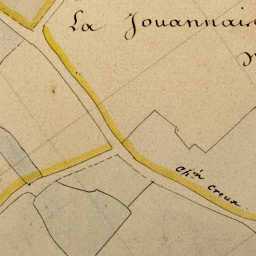 La Jouannais
Ch.in Creux